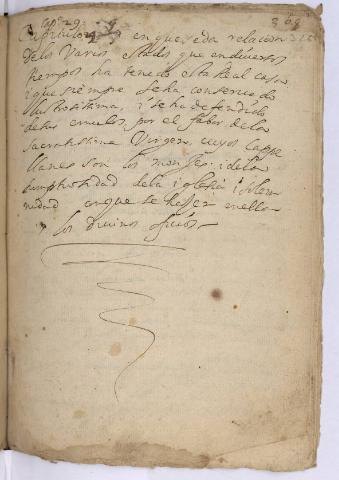 Capº 29 368
Capitulo 29 en que se da relacion
de los Varios estados que en diuersos
tiempos ha tenido esta Real casa
i que siempre se ha conseruado
Illustrissima, i se ha defendido
de sus emulos, por el fabor de la
Sacratissima Virgen, cuyos cappe
llanes son los monges: i de la
sumptuosidad de la iglesia i solem
nidad con que se hacen en ella
los diuinos oficios